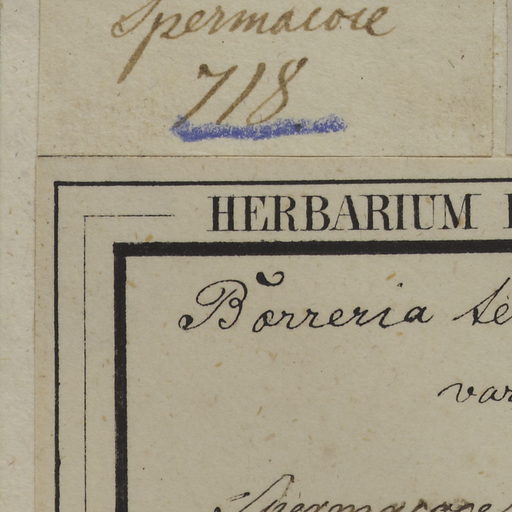 Spermacoce
718.
HERBARIUM
Borreria te
var
Spermacoce